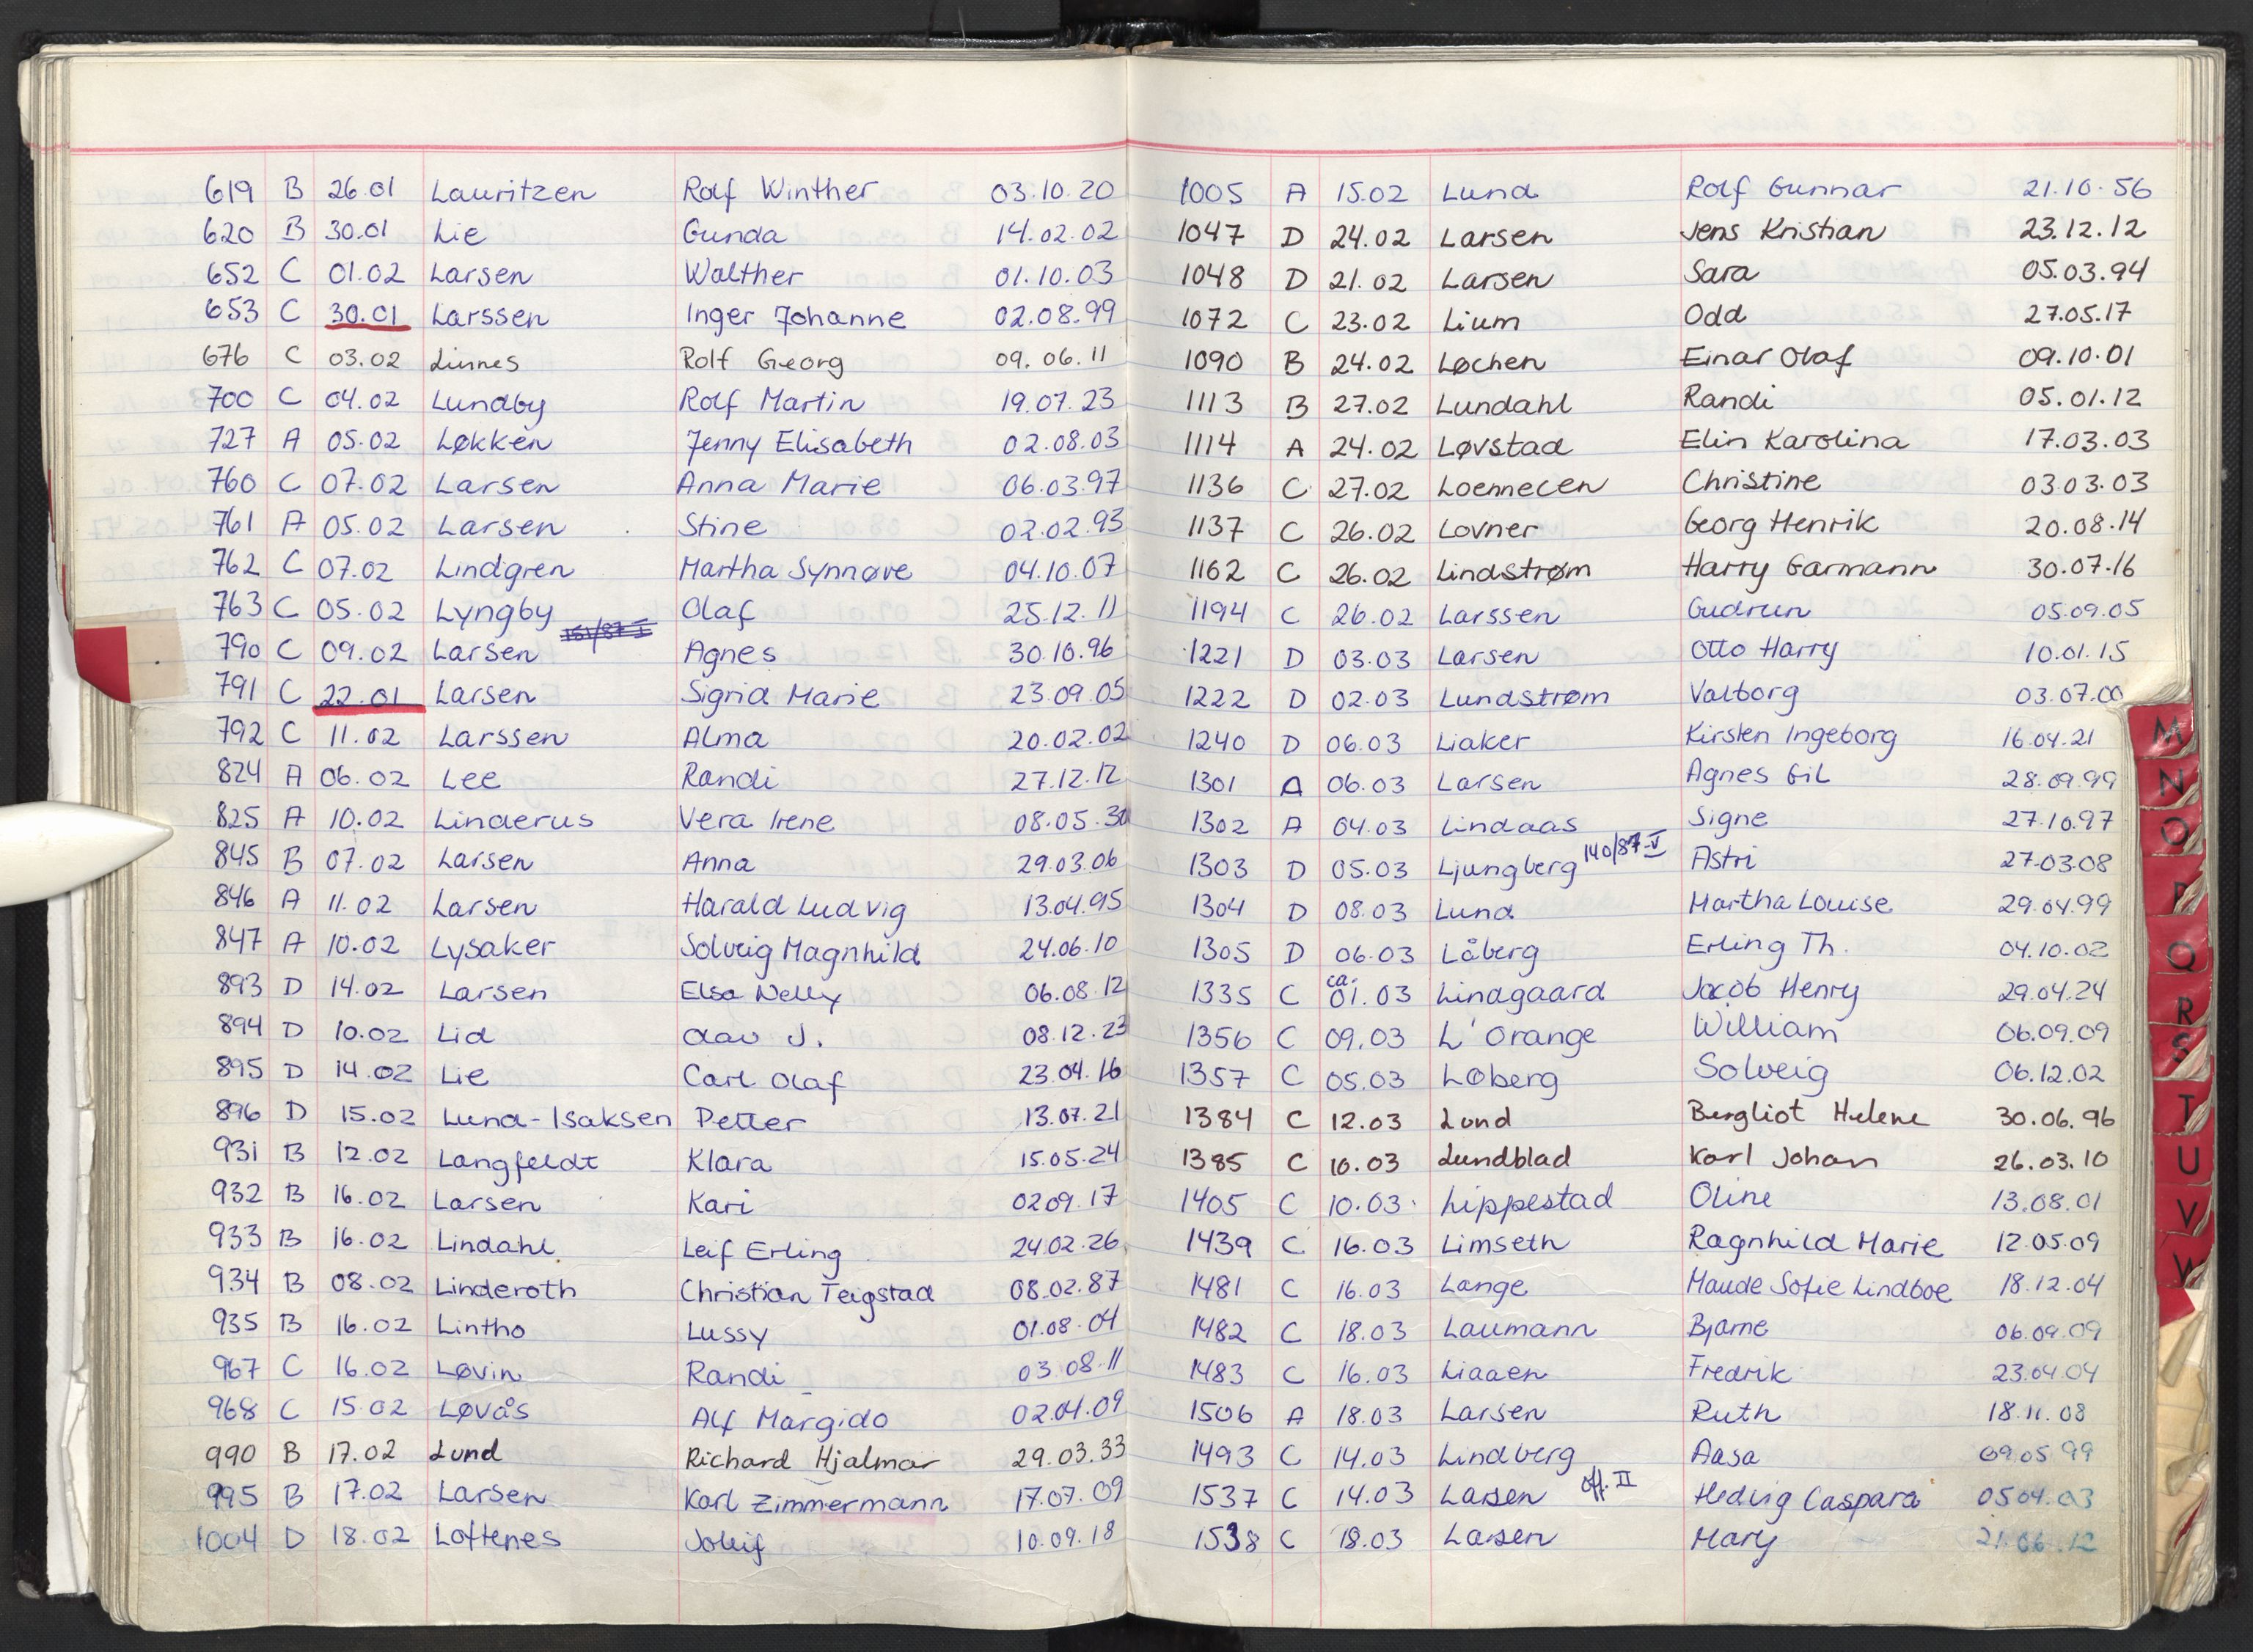 619 B 26.01 Lauritzen Rolf Winther 03.10.20
620 B 30.01 Lie Gunda 14.02.02
652 C 01.02 Larsen Walther 01.10.03
653 C 30.01 Larssen Inger Johanne 02.08.99
676 C 03.02 Linnes Rolf Georg 09.06.11
700 C 04.02 Lundby Rolf Martin 19.07.23
727 A 05.02 Løkken Jenny Elisabeth 02.08.03
760 C 07.02 Larsen Anna Marie 06.03.97
761 A 05.02 Larsen Stine 02.02.93
762 C 07.02 Lindgren Martha Synnøve 04.10.07
763 C 05.02 Lyngby Olaf 25.12.11
790 C 09.02 Larsen Agnes 30.10.96
791 C 22.01 Larsen Sigrid Marie 23.09.05
792 C 11.02 Larssen Alma 20.02.02
824 A 06.02 Lee Randi 27.12.12
825 A 10.02 Linderus Vera Irene 08.05.30
845 B 07.02 Larsen Anna 29.03.06
846 A 11.02 Larsen Harald Ludvig 13.04.95
847 A 10.02 Lysaker Solveig Magnhild 24.06.10
893 D 14.02 Larsen Elsa Nelly 06.08.12
894 D 10.02 Lid Olav J. 08.12.23
895 D 14.02 Lie Carl Olaf 23.04.16
896 D 15.02 Lund-Isaksen Petter 13.07.21
931 B 12.02 Langfeldt Klara 15.05.24
932 B 16.02 Larsen Kari 02 09.17
933 B 16.02 Lindahl Leif Erling 24.02.26
934 B 08.02 Linderoth Christian Teigstad 08.02.87
935 B 16.02 Lintho Lussy 01.08.04
967 C 16.02 Løvin Randi 03.08.11
968 C 15.02 Løvås Alf Margido 02.04.09
990 B 17.02 Lund Richard Hjalmar 29.03.33
995 B 17.02 Larsen Karl Zimmermann 17.07.09
1004 D 18.02 Loftenes Jolleif 10.09.18
1005 A 15.02 Lund Rolf Gunnar 21.10.56
1047 D 24.02 Larsen Jens Kristian 23.12.12
1048 D 21.02 Larsen Sara 05.03.94
1072 C 23.02 Lium Odd 27.05.17
1090 B 24.02 Løchen Einar Olaf 09.10.01
1113 B 27.02 Lundahl Randi 05.01.12
1114 A 24.02 Løvstad Elin Karolina 17.03.03
1136 C 27.02 Loennecen Christine 03.03.03
1137 C 26.02 Lovner Georg Henrik 20.08.14
1162 C 26.02 Lindstrøm Harry Garmann 30.07.16
1194 C 26.02 Larssen Gudrun 05.09.05
1221 D 03.03 Larsen Otto Harry 10.01.15
1222 D 02.03 Lundstrøm Valborg 03.07.00
1240 D 06.03 Liaker Kirsten Ingeborg 16.04.21
1301 A 06.03 Larsen Agnes Gil 28.09.99
1302 A 04.03 Lindaas Signe 27.10.97
1303 D 05.03 Ljungberg 140/87-V Astri 27.03.08
1304 D 08.03 Lund Martha Louise 29.04.99
1305 D 06.03 Låberg Erling Th. 04.10.02
1335 C ca. 01.03 Lindgaard Jacob Henry 29.04.24
1356 C 09.03 L'Orange William 06.09.09
1357 C 05.03 Løberg Solveig 06.12.02
1384 C 12.03 Lund Bergliot Helene 30.06.96
1385 C 10.03 Lundblad Karl Johan 26.03.10
1405 C 10.03 Lippestad Oline 13.08.01
1439 C 16.03 Limseth Ragnhild Marie 12.05.09
1481 C 16.03 Lange Maude Sofie Lindboe 18.12.04
1482 C 18.03 Laumann Bjarne 06.09.09
1483 C 16.03 Liaaen Fredrik 23.04.04
1506 A 18.03 Larsen Ruth 18.11.08
1493 C 14.03 Lindberg Aasa 09.05.99
1537 C 14.03 Larsen off. II Hedvig Caspara 05 04.03
1538 C 18.03 Larsen Mary 21.06.12
M
N
O
P
Q
R
S
T
U
V
W